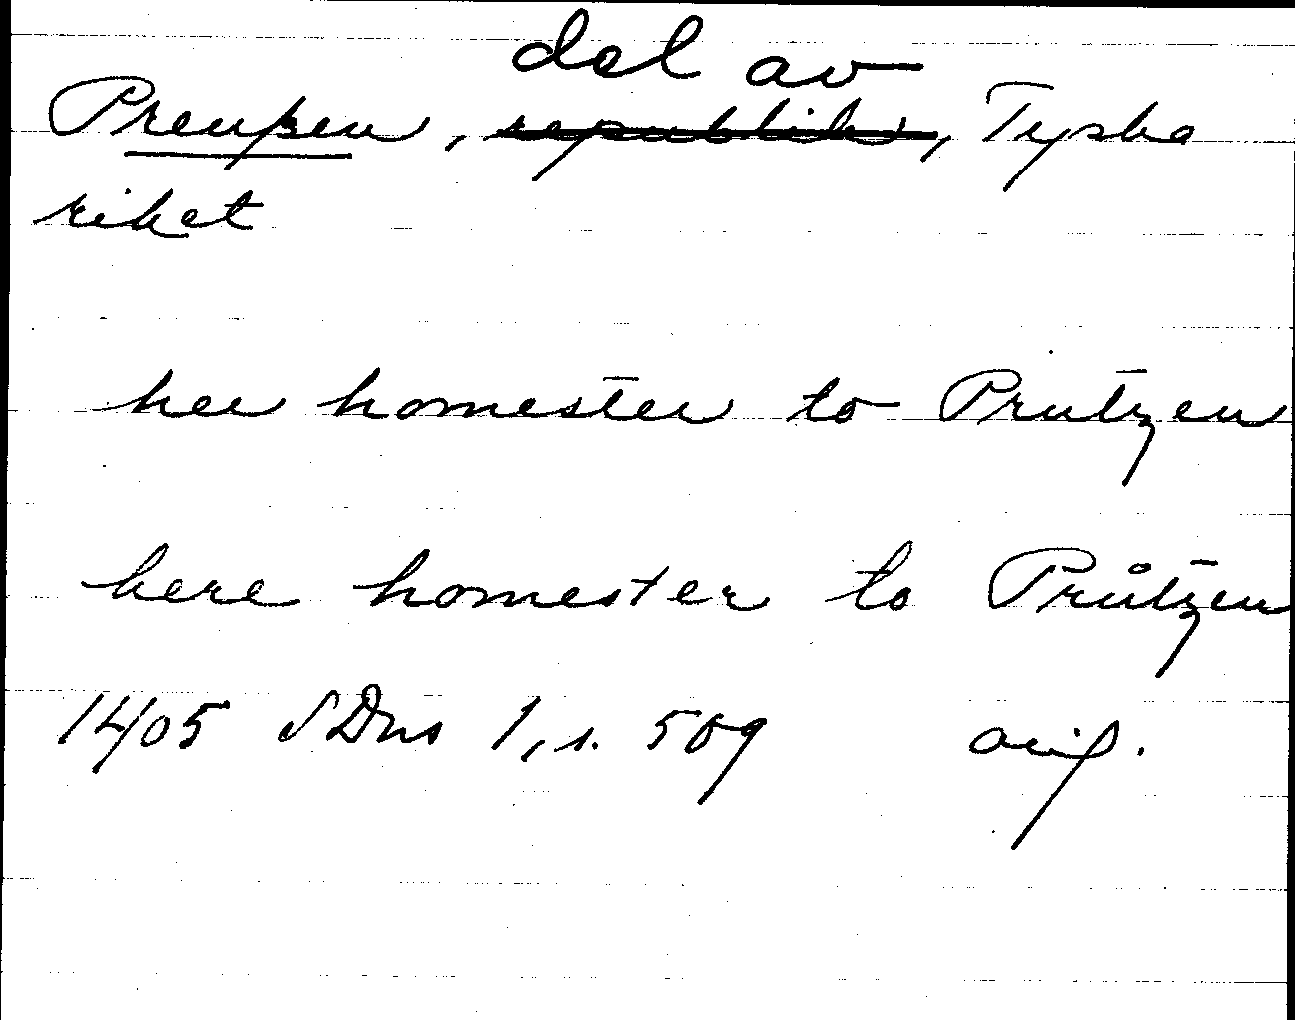 del av
Preußen, republik, Tyska
riket
her homester̄ to Prūtzen
here homester to Průtzen̄
1405 SDns 1, s. 509 avig.